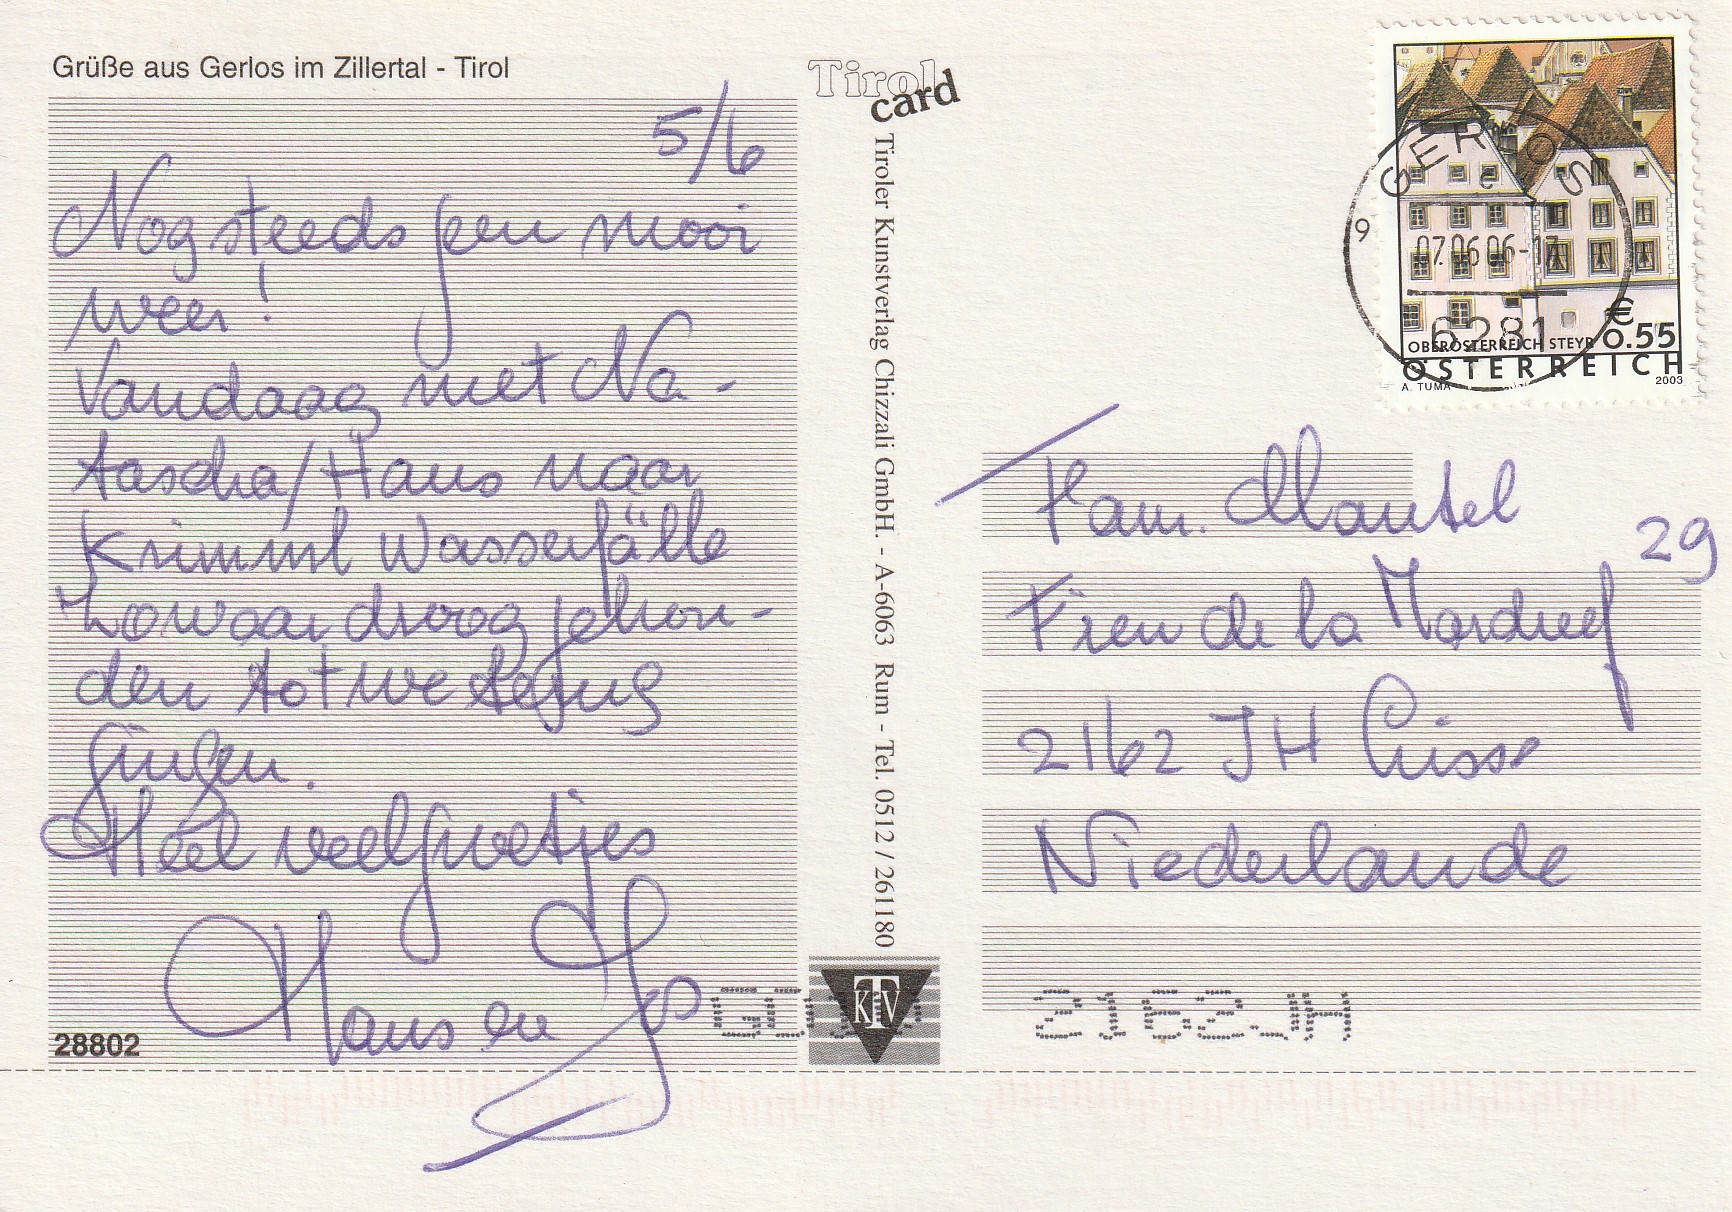 Grüße aus Gerlos im Zillertal - Tirol
5/6
Nog steeds geen mooi
weer!
Vandaag met Na-
tascha/Hans naar
Krimml Wasserfälle
Zowaar droog gehou-
den tot we terug
gingen.
Heel veel groetjes
Hans en Jos
28802
Tirol
card
Tiroler Kunstverlag Chizzali GmbH. - A-6063 Rum - Tel. 0512 / 261180
KTV
GERLOS
9
07.06.06-17
6281
€ 0.55
OBERÖSTERREICH STEYR
ÖSTERREICH
A. TUMA
2003
Fam. Mantel
29
Fien de la Mardreef
2162 JH Lisse
Niederlande
2162JH